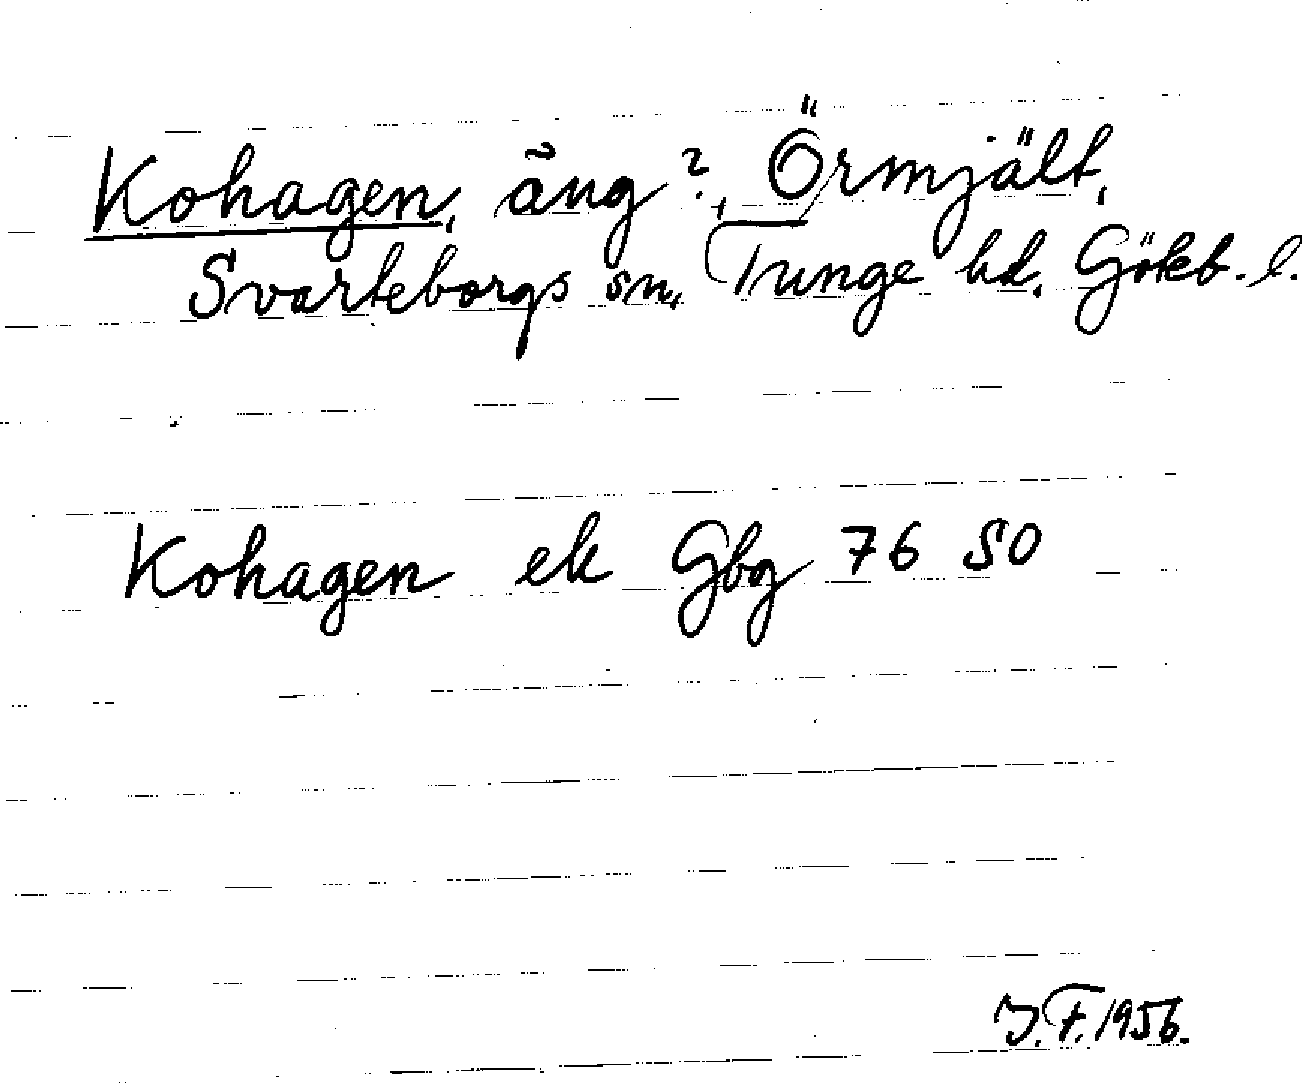 Kohagen, äng?, Örmjält,
Svarteborgs sn, Tunge hd. Gökb. l.
Kohagen ek Gbg 76 SO
J.F. 1956.